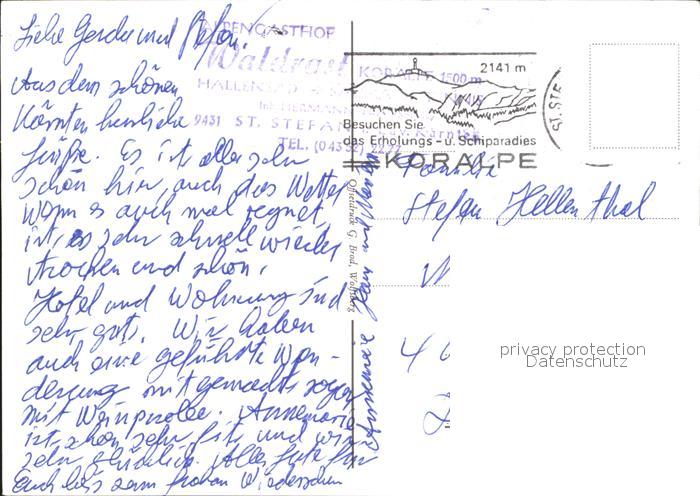 Liebe Gerda und Stefan,
Aus dem schönen
Kärnten herzliche
Grüße. Es ist alles sehr
schön hier, auch das Wetter
Wenn es auch mal regnet
ist, es sehr schnell wieder
trocken und schön.
Hotel und Wohnung sind
sehr gut. Wir haben
auch eine geführte Wan-
derung mitgemacht sogar
mit Weinprobe. Annemarie
ist schon sehr fit und wir
sehr glücklich. Alles Gute für
Euch bis zum frohen Wiedersehen
Annemarie
ALPENGASTHOF
Waldrast
KORALPE 1500 m
HALLENBAD
9431 ST. STEFAN
TEL. (04352)
2141 m
Besuchen Sie
das Erholungs- u. Schiparadies
KORALPE
ST. STE
Offsetdruck G. Brod, Wolfsberg
Familie
Stefan Hellenthal
privacy protection
Datenschutz